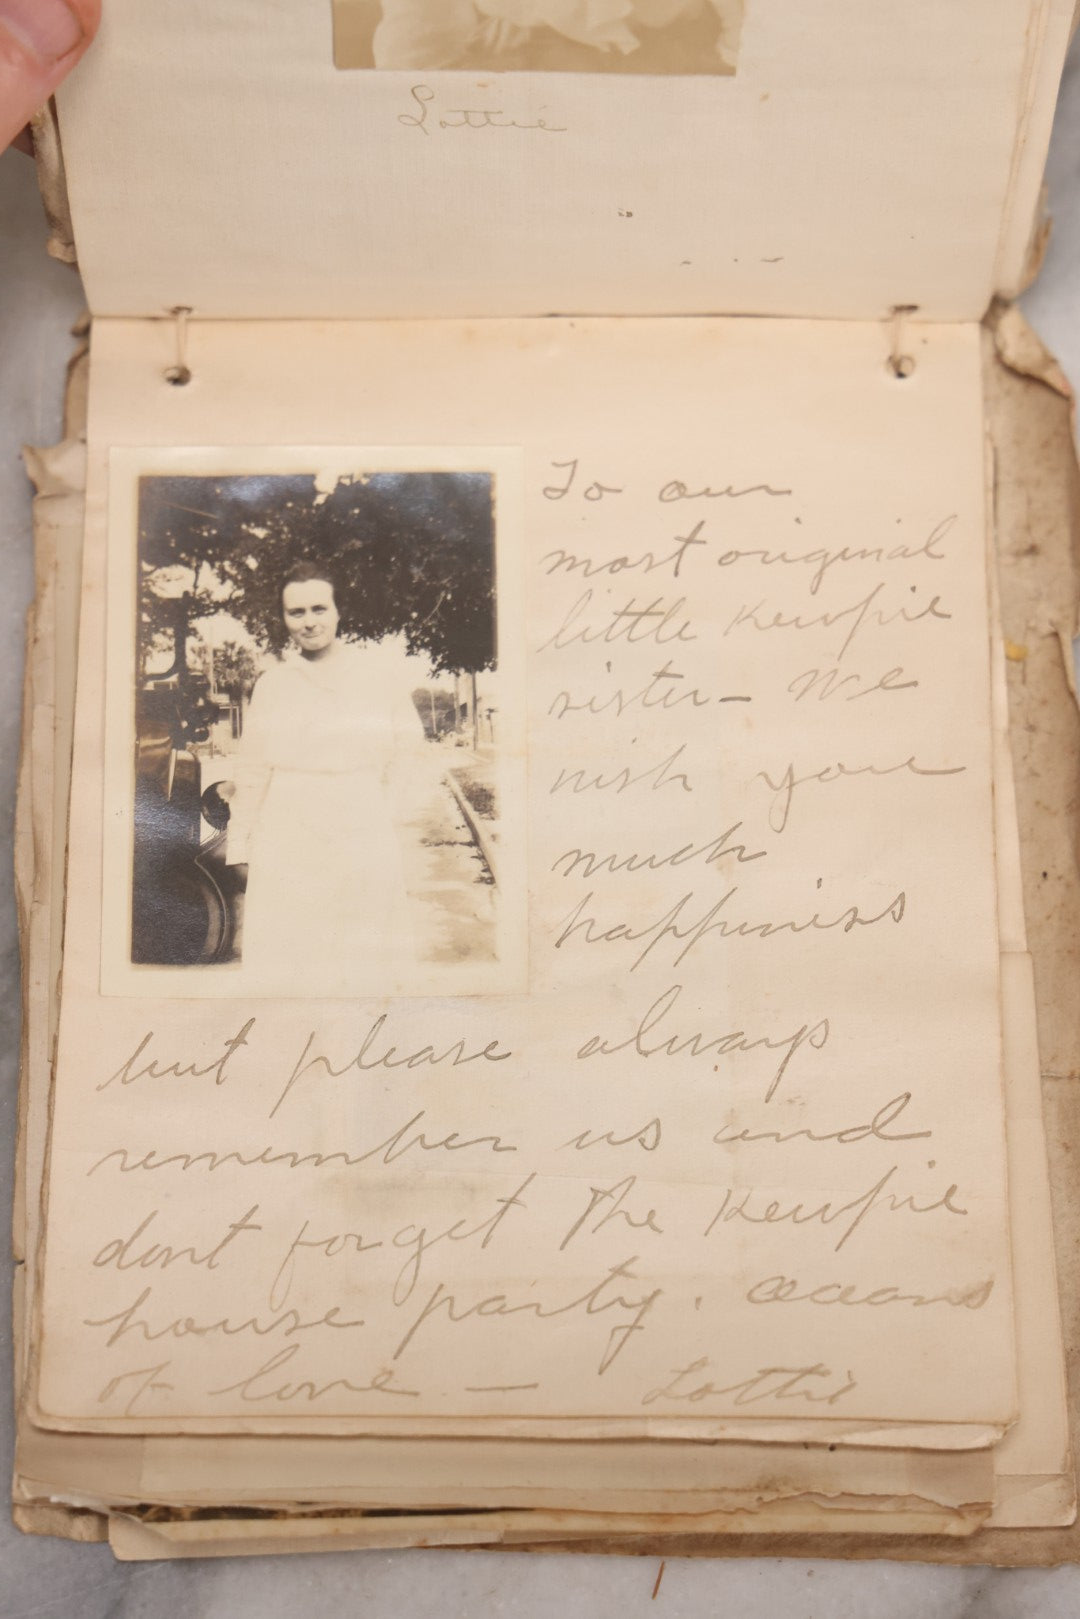 Lottie
To our
most original
little Kewpie
sister - We
wish you
much
happiness
but please always
remember us and
dont forget the Kewpie
house party. Oceans
of love — Lottie